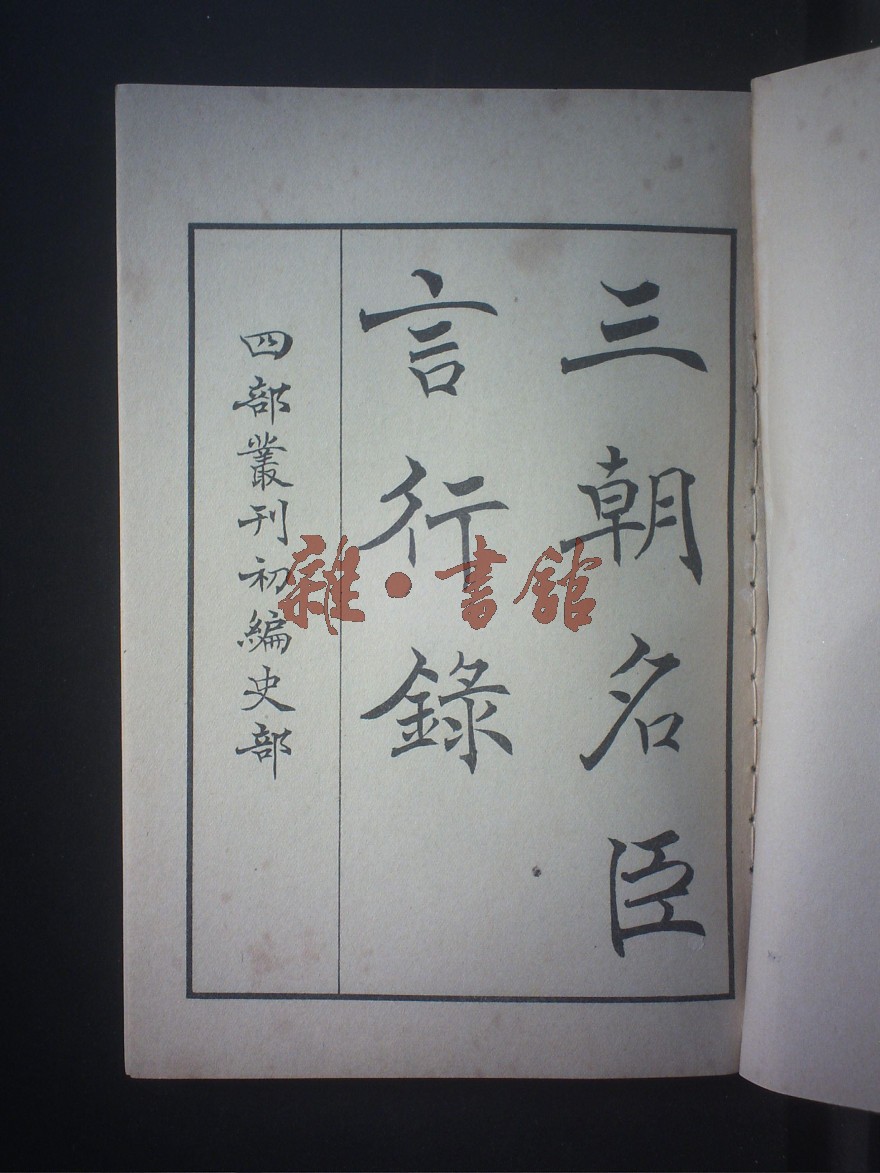 三朝名臣
言行錄
四部叢刊初編史部
雜·書館